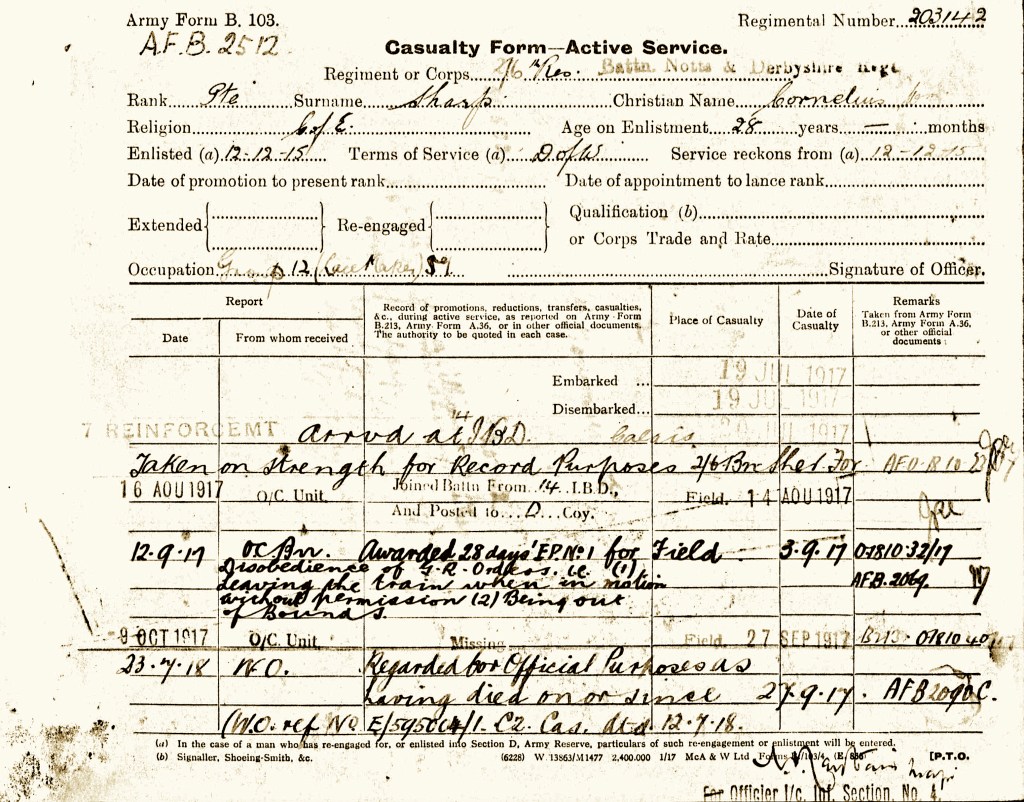 Army Form B. 103.
Regimental Number 203142
A.F.B. 2512.
Casualty Form—Active Service.
Regiment or Corps Res. Battn. Notts & Derbyshire Regt
Rank Pte Surname Sharp Christian Name Cornelius
Religion C of E. Age on Enlistment 28 years — months
Enlisted (a) 12-12-15 Terms of Service (a) D of W Service reckons from (a) 12-12-15
Date of promotion to present rank Date of appointment to lance rank
Extended Re-engaged Qualification (b)
or Corps Trade and Rate
Occupation Group 12 (Lace Maker) 59 Signature of Officer.
Report
Date
From whom received
Record of promotions, reductions, transfers, casualties, &c., during active service, as reported on Army Form B.213, Army Form A.36, or in other official documents. The authority to be quoted in each case.
Place of Casualty
Date of Casualty
Remarks
Taken from Army Form B.213, Army Form A.36, or other official documents
Embarked ... 19 JUL 1917
Disembarked... 19 JUL 1917
7 REINFORCEMT Arrvd at 14 I.B.D. Calais 20 JUL 1917
Taken on strength for Record Purposes 2/6 Bn Sher. For
16 AOU 1917 O/C. Unit. Joined Battn From 14 I.B.D., Field. 14 AOU 1917
And Posted to D Coy.
12.9.17 OC Bn. Awarded 28 days' F.P. No 1 for Field 3.9.17 O7810.32/17
Disobedience of G.R. Orders. i.e. (1)
Leaving the train when in motion AFB.2069.
without permission (2) Being out
of Bounds.
9 OCT 1917 O/C. Unit Missing Field. 27 SEP 1917 B213. O7810
23.7.18 W.O. Regarded for Official Purposes as
having died on or since 27.9.17. AFB 2090C.
(W.O. ref No E/595064/1. C2. Cas. dtd. 12.7.18.
(a) In the case of a man who has re-engaged for, or enlisted into Section D, Army Reserve, particulars of such re-engagement or enlistment will be entered.
(b) Signaller, Shoeing-Smith, &c. (6228) W 13863/M1477 2,400,000 1/17 McA & W Ltd [P.T.O.
For Officier I/c. Inf. Section, No. 4